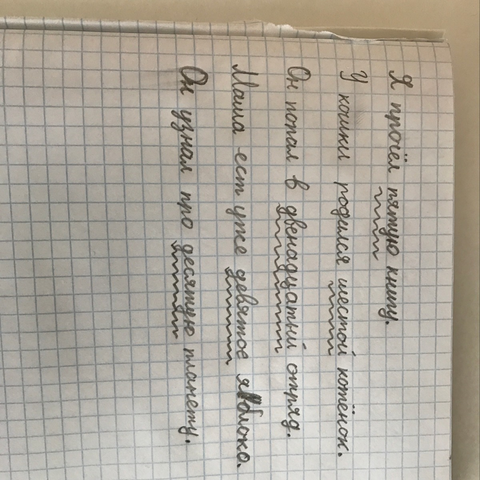 Я прочёл пятую книгу.
У кошки родился шестой котёнок.
Он попал в двенадцатый отряд.
Маша ест уже девятое яблоко.
Он узнал про десятую планету.